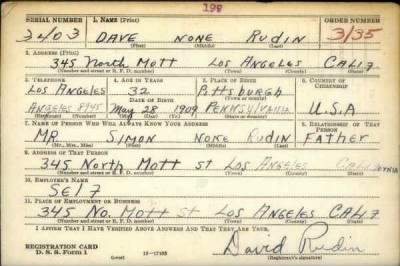 199
SERIAL NUMBER 1. NAME (Print) ORDER NUMBER
3403 DAVE NONE RUDIN 3135
(First) (Middle) (Last)
2. ADDRESS (Print)
345 North Mott Los Angeles CALIF
(Number and street or R. F. D. number) (Town) (County) (State)
3. TELEPHONE 4. AGE IN YEARS 5. PLACE OF BIRTH 6. COUNTRY OF CITIZENSHIP
Los Angeles 32 Pittsburgh
DATE OF BIRTH (Town or county)
Angelus 8945 May 28 1909 Pennsylvania U.S.A
(Exchange) (Number) (Mo.) (Day) (Yr.) (State or country)
7. NAME OF PERSON WHO WILL ALWAYS KNOW YOUR ADDRESS 8. RELATIONSHIP OF THAT PERSON
MR. SIMON NONE RUDIN FATHER
(Mr., Mrs., Miss) (First) (Middle) (Last)
9. ADDRESS OF THAT PERSON
345 North Mott St Los Angeles California
(Number and street or R. F. D. number) (Town) (County) (State)
10. EMPLOYER'S NAME
SELF
11. PLACE OF EMPLOYMENT OR BUSINESS
345 No. Mott St Los Angeles CALIF
(Number and street or R. F. D. number) (Town) (County) (State)
I AFFIRM THAT I HAVE VERIFIED ABOVE ANSWERS AND THAT THEY ARE TRUE.
REGISTRATION CARD
D. S. S. Form 1 16-17105 David Rudin
(Registrant's signature)